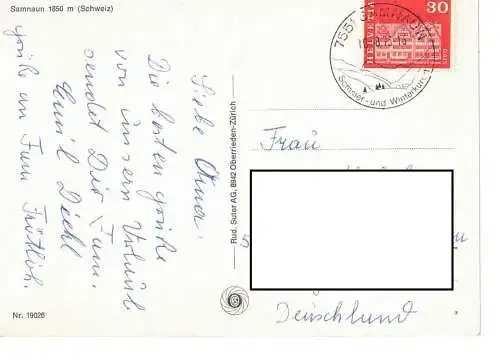 Samnaun 1850 m (Schweiz)
Liebe Oma.
Die besten Grüße
von unserm Urlaub
sendet Dir Fam.
Emil Diehl
Grüße an Fam. Fröhlich.
Rud. Suter AG, 8942 Oberrieden-Zürich
Nr. 19026
HELVETIA
30
7551 SAMNAUN
Sommer- und Winterkurort
Frau
5
Deuschland